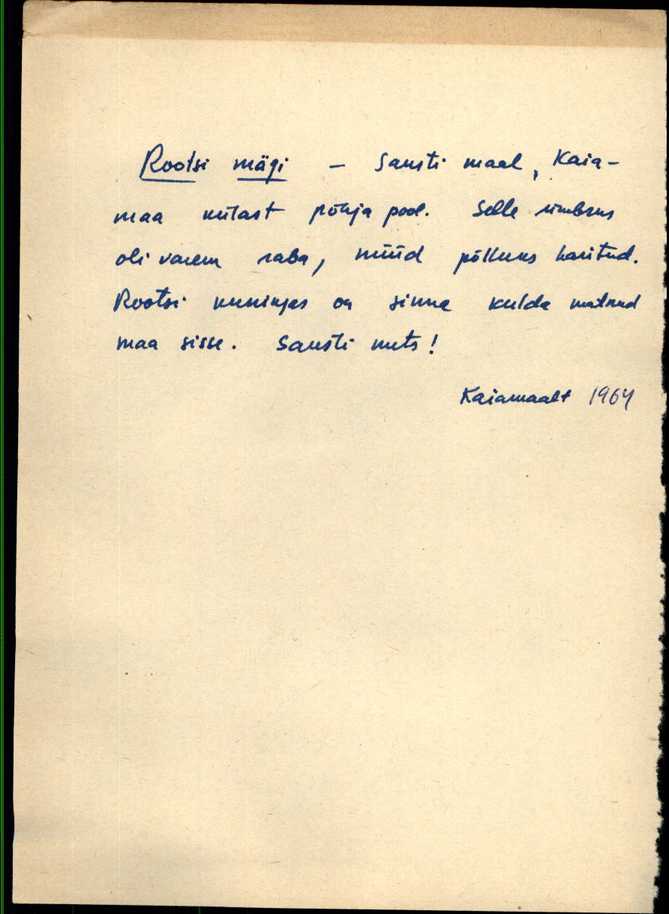 Rootsi mägi – Sausti maal, Kaia-
maa külast põhja pool. Selle ümbrus
oli varem raba, nüüd põlluks haritud.
Rootsi kuningas on sinna kulda matnud
maa sisse. Sausti mets!
Kaiamaalt 1964